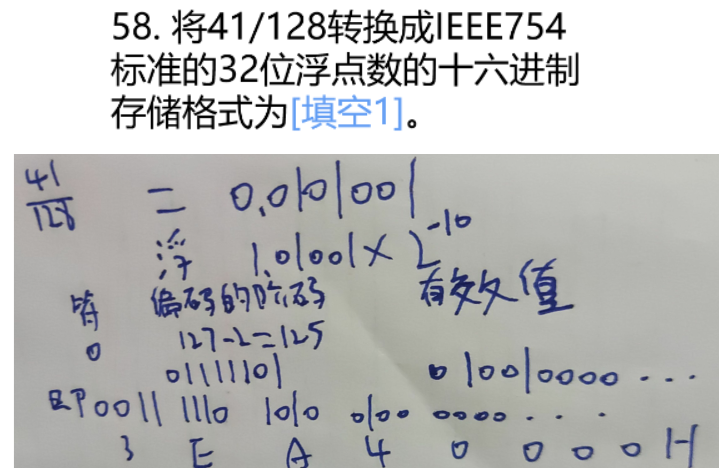 58. 将41/128转换成IEEE754
标准的32位浮点数的十六进制
存储格式为[填空1]。
41/128 = 0.0101001
浮 1.01001×2^-10
符 偏码的阶码 有效值
0 127-2=125
01111101 010010000...
即0011 1110 1010 0100 0000...
3 E A 4 0 0 0 0 H